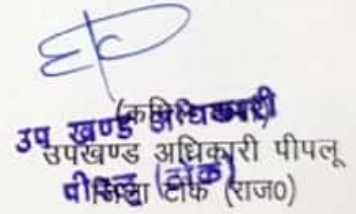 उप खण्ड अधिकारी
उपखण्ड अधिकारी पीपलू
पीपलू (टोंक)
जिला टोंक (राज०)